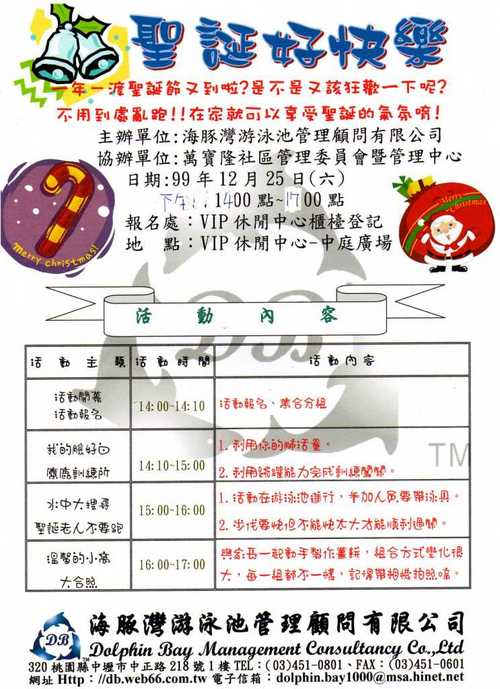 聖誕好快樂
一年一渡聖誕節又到啦?是不是又該狂歡一下呢?
不用到處亂跑!!在家就可以享受聖誕的氣氛唷!
主辦單位:海豚灣游泳池管理顧問有限公司
協辦單位:萬寶隆社區管理委員會暨管理中心
日期:99年12月25日(六)
下午:1400點~1700點
報名處:VIP休閒中心櫃檯登記
地 點:VIP休閒中心-中庭廣場
Merry Christmas!
Merry Christmas
活動內容
DB
活動主題 活動時間 活動內容
活動開幕
活動報名
14:00-14:10
活動報名,集合分組
我的臉好白
療癒訓練所
14:10-15:00
1.利用你的肺活量。
2.利用跳躍能力完成訓練闖關。
水中大搜尋
聖誕老人不要跑
15:00-16:00
1.活動在游泳池進行,參加人員要帶泳具。
2.步伐要快但不能快太大才能順利過關。
溫馨的小窩
大合照
16:00-17:00
與家長一起動手製作薑餅,組合方式變化很
大,每一組都不一樣,記得帶相機拍照唷。
TM
DB
海豚灣游泳池管理顧問有限公司
Dolphin Bay Management Consultancy Co.,Ltd
320桃園縣中壢市中正路218號1樓 TEL:(03)451-0801、FAX:(03)451-0601
網址Http://db.web66.com.tw 電子信箱:dolphin.bay1000@msa.hinet.net